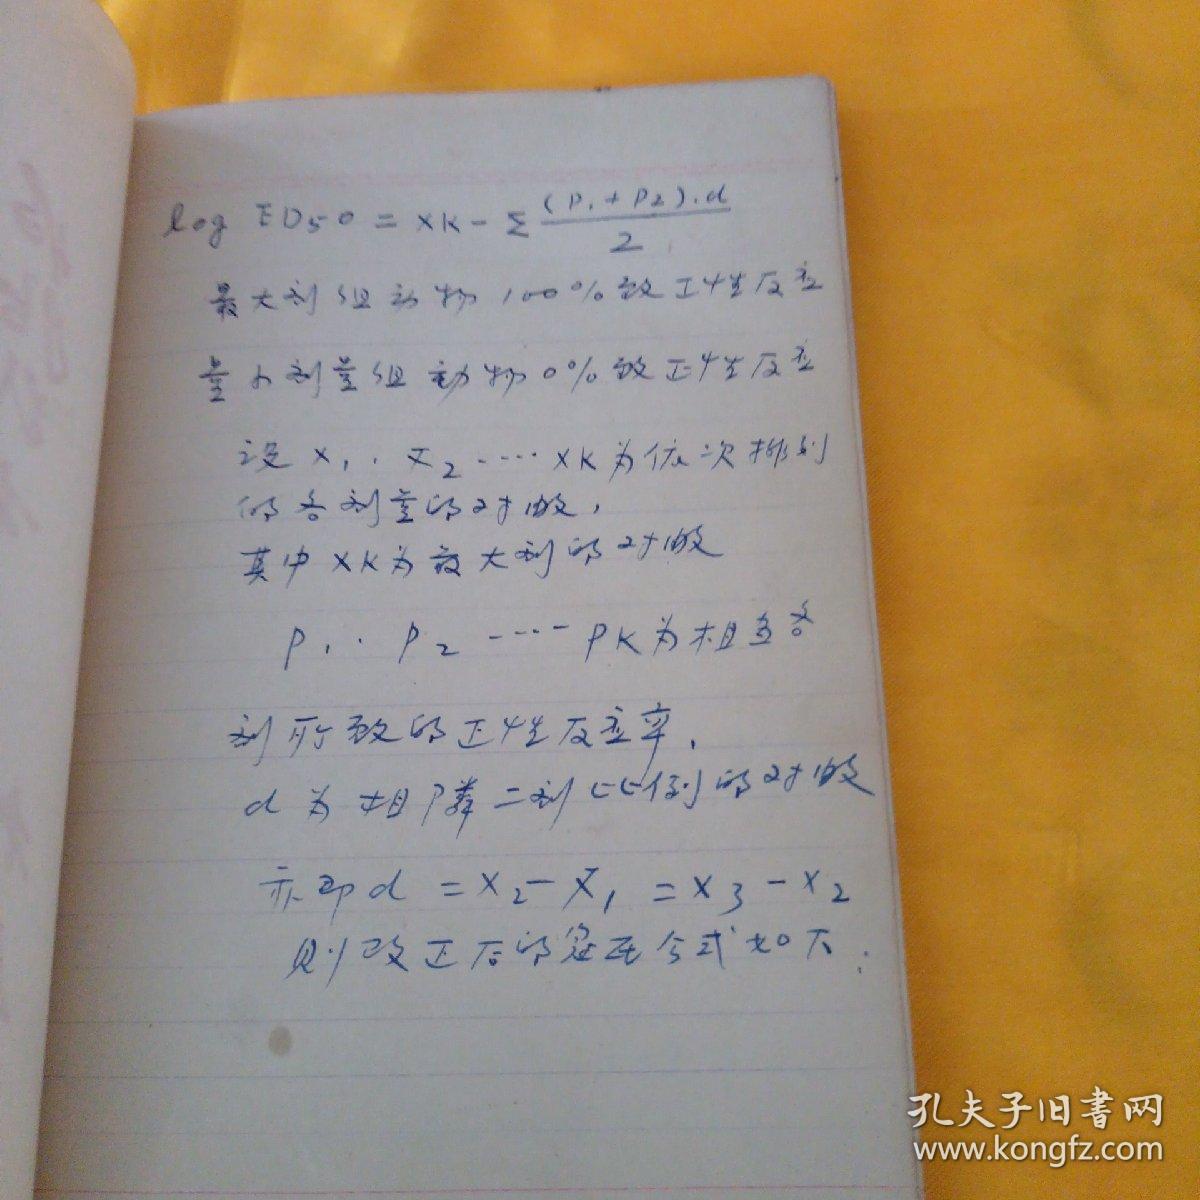 log ED50 = XK - Σ (P1 + P2).d / 2
最大剂组动物100%致正性反应
最小剂量组动物0%致正性反应
设 X1. X2 ..... XK为依次排列
的各剂量的对数,
其中XK为最大剂的对数
P1. P2 ----- PK为相当各
剂所致的正性反应率.
d为相隣二剂比例的对数
亦即d = X2 - X1 = X3 - X2
则改正后的寇氏公式如下:
孔夫子旧書网
www.kongfz.com